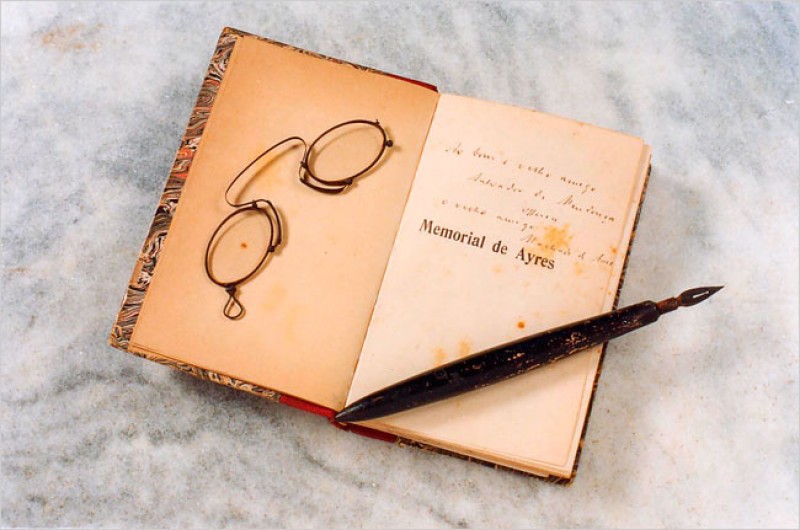 Ao bom e velho amigo
Salvador de Mendonça
offerece
o velho amigo
Machado de Assis
Memorial de Ayres